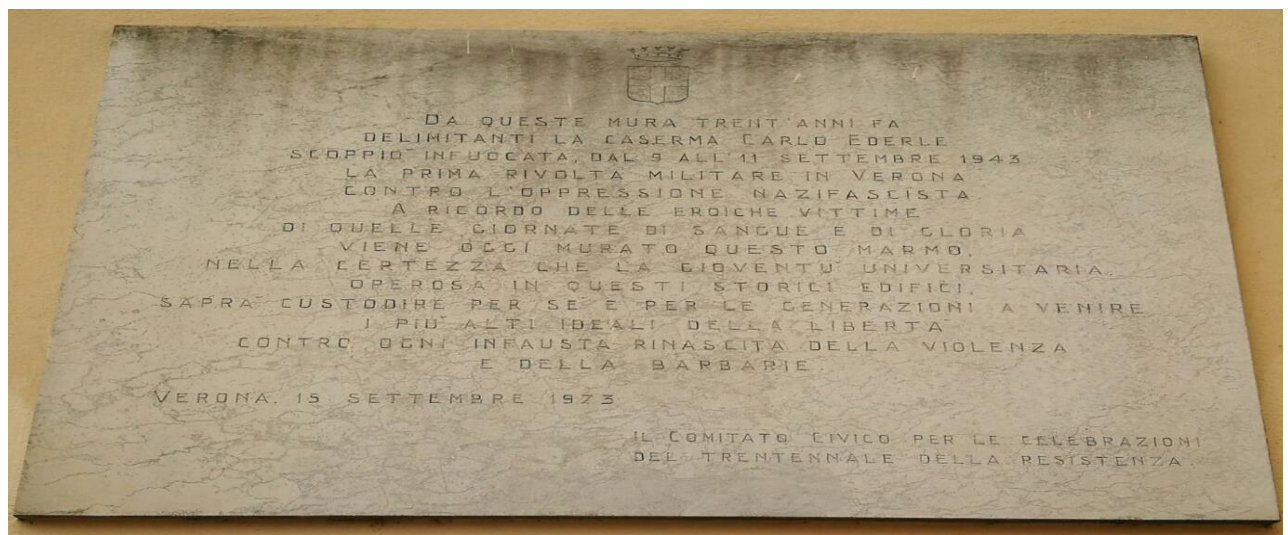 DA QUESTE MURA TRENT'ANNI FA
DELIMITANTI LA CASERMA CARLO EDERLE
SCOPPIÒ INFUOCATA, DAL 9 ALL'11 SETTEMBRE 1943
LA PRIMA RIVOLTA MILITARE IN VERONA
CONTRO L'OPPRESSIONE NAZIFASCISTA.
A RICORDO DELLE EROICHE VITTIME
DI QUELLE GIORNATE DI SANGUE E DI GLORIA
VIENE OGGI MURATO QUESTO MARMO,
NELLA CERTEZZA CHE LA GIOVENTÙ UNIVERSITARIA,
OPEROSA IN QUESTI STORICI EDIFICI,
SAPRÀ CUSTODIRE PER SE E PER LE GENERAZIONI A VENIRE
I PIÙ ALTI IDEALI DELLA LIBERTÀ
CONTRO OGNI INFAUSTA RINASCITA DELLA VIOLENZA
E DELLA BARBARIE.
VERONA, 15 SETTEMBRE 1973
IL COMITATO CIVICO PER LE CELEBRAZIONI
DEL TRENTENNALE DELLA RESISTENZA.